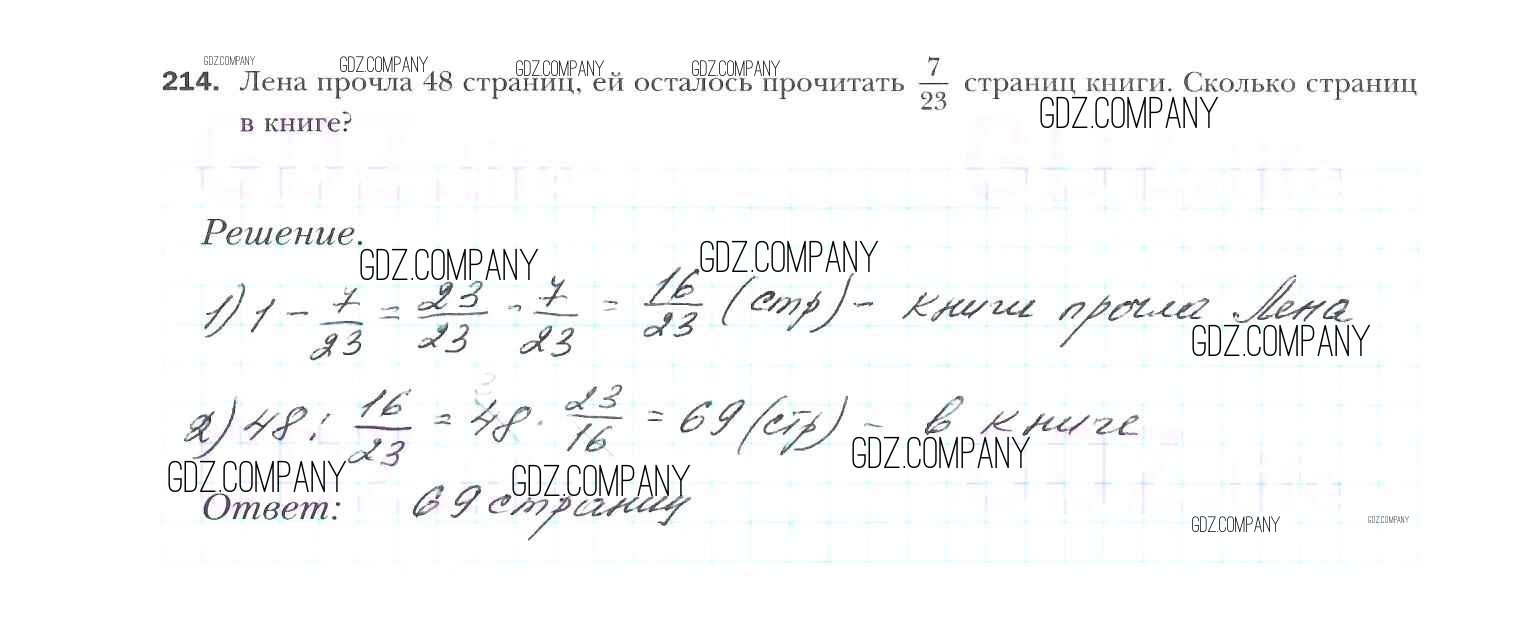 GDZ.COMPANY GDZ.COMPANY GDZ.COMPANY GDZ.COMPANY
214. Лена прочла 48 страниц, ей осталось прочитать 7/23 страниц книги. Сколько страниц
в книге?
GDZ.COMPANY
Решение.
GDZ.COMPANY GDZ.COMPANY
1) 1 - 7/23 = 23/23 - 7/23 = 16/23 (стр) - книги прочла Лена
GDZ.COMPANY
2) 48 : 16/23 = 48 · 23/16 = 69 (стр) - в книге
GDZ.COMPANY GDZ.COMPANY GDZ.COMPANY
Ответ: 69 страниц
GDZ.COMPANY GDZ.COMPANY